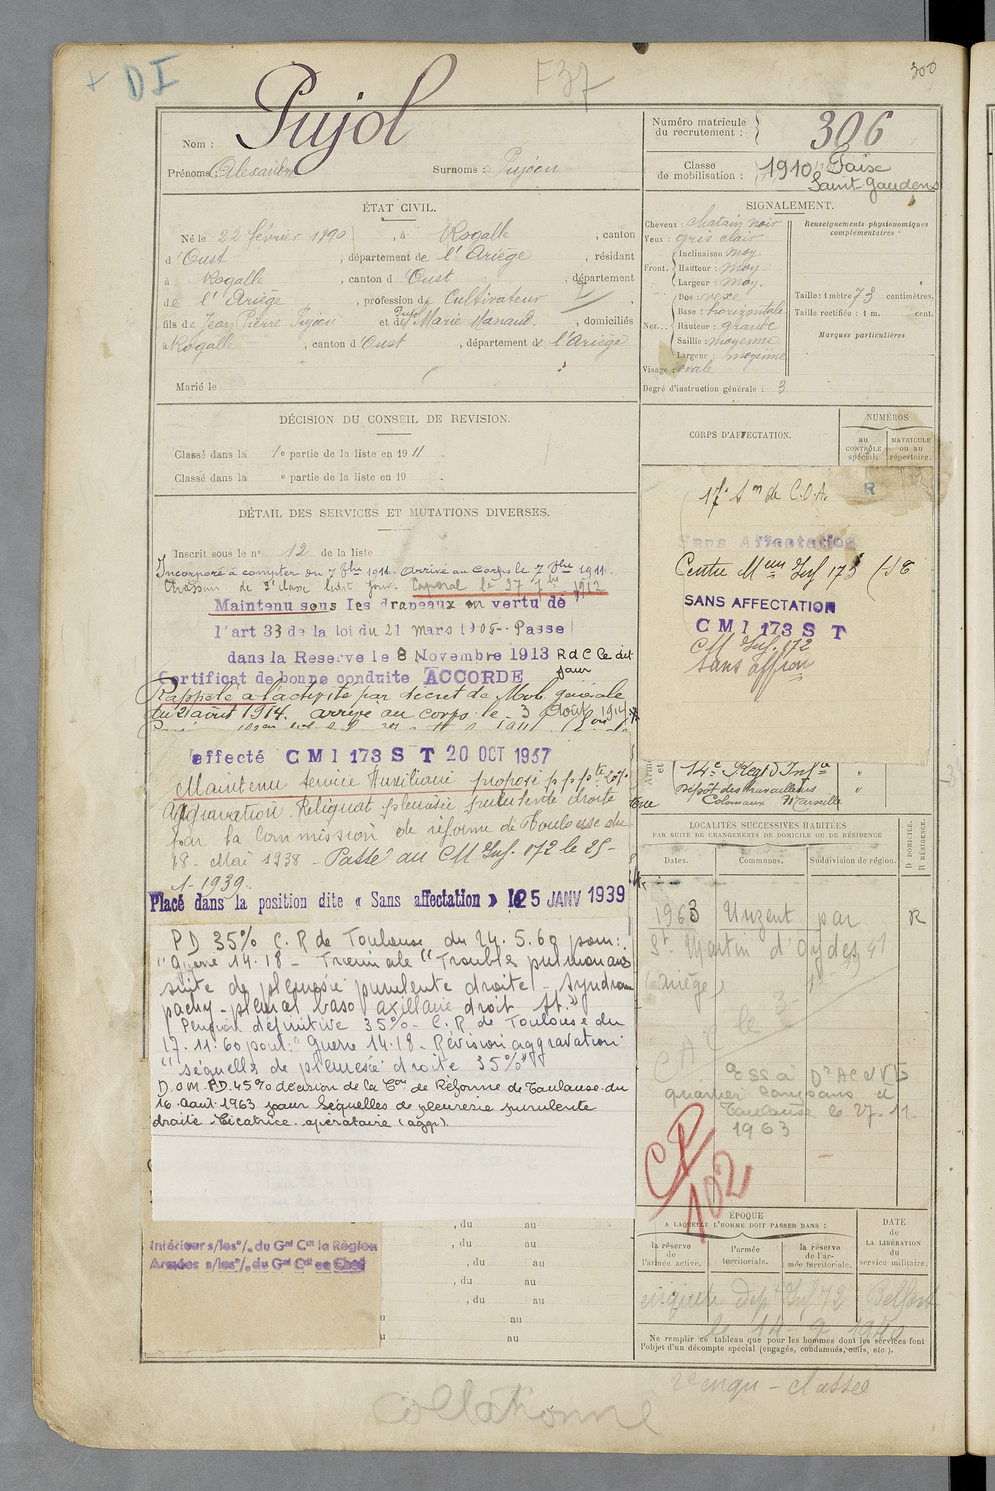 + DI
F37
300
Nom : Pujol
Prénoms : Alexandre Surnoms : Pujóou
Numéro matricule du recrutement : 306
Classe de mobilisation : 1910
Saint-Gaudens
ÉTAT CIVIL.
Né le 22 février 1890, à Rogalle, canton
d'Oust, département de l'Ariège, résidant
à Rogalle, canton d'Oust, département
de l'Ariège, profession de Cultivateur
fils de Jean Pierre Pujou et de Marie Manaud, domiciliés
à Rogalle, canton d'Oust, département de l'Ariège
Marié le
SIGNALEMENT.
Cheveux : chatain noir
Yeux : gris clair
Front. Inclinaison : moy.
Hauteur : moy.
Largeur : moy.
Nez... Dos : vexe
Base : horizontale
Hauteur : grande
Saillie : moyenne
Largeur : moyenne
Visage : ovale
Degré d'instruction générale : 3
Renseignements physionomiques complémentaires :
Taille : 1 mètre 73 centimètres.
Taille rectifiée : 1 m. cent.
Marques particulières
DÉCISION DU CONSEIL DE REVISION.
Classé dans la 1e partie de la liste en 1911
Classé dans la e partie de la liste en 19 .
DÉTAIL DES SERVICES ET MUTATIONS DIVERSES.
Inscrit sous le n° 12 de la liste
Incorporé à compter du 7 8bre 1911. Arrivé au corps le 7 8bre 1911.
de 2e classe ledit jour. Caporal le 27 7bre 1912
Maintenu sous les drapeaux en vertu de
l'art 33 de la loi du 21 mars 1905-- Passe
dans la Reserve le 8 Novembre 1913 R d C le dit jour
Certificat de bonne conduite ACCORDE
Rappelé à l'activité par décret de Mob générale
du 2 août 1914. arrivé au corps le 3 Août 1914
affecté CMI 173 ST 20 OCT 1937
Maintenu service Auxiliaire proposé p.p.
Aggravation. Reliquat pleurésie purulente droite
par la Commission de réforme de Toulouse du
18 - Mai 1938 - Passé au CM Inf. 172 le 25-
1-1939.
Placé dans la position dite « Sans affectation » le 25 JANV 1939
PD 35% C.R de Toulouse du 24.5.60 pour:
"Guerre 14.18 - Troubles pulmonaires
suite de pleurésie purulente droite! - Syndrome
pachy-pleural baso axillaire droit
Pension définitive 35% - C.R. de Toulouse du
17.11.60 pour: "Guerre 14.18 - Révision aggravation
"séquelles de pleurésie droite 35%"
D.O.M. PD. 45% décision de la Con de Réforme de Toulouse du
16 Aout 1963 pour Séquelles de pleuresie purulente
droite. Cicatrice opératoire (aggr.).
Intérieur s/les°/. du Gal Ct la Région
Armées s/les°/. du Gal Ct en Chef
, du au
, du au
, du au
, du au
, du au
au
au
CORPS D'AFFECTATION.
NUMÉROS
au CONTRÔLE spécial.
MATRICULE ou au répertoire.
17e Son de C.O.A. R
Sans Affectation
Centre Meur Inf 173
SANS AFFECTATION
CMI 173 ST
CM Inf. 172
Sans affon
14e Regt d'Infie "
Dépôt des travailleurs "
Coloniaux Marseille
LOCALITÉS SUCCESSIVES HABITÉES
PAR SUITE DE CHANGEMENTS DE DOMICILE OU DE RÉSIDENCE
Dates. Communes. Subdivision de région. D DOMICILE. R RÉSIDENCE.
1963 Unzent par R
St Martin d'Oydes
(Ariège)
quartier Compans
Toulouse le 27.11
1963
CP
102
ÉPOQUE
A LAQUELLE L'HOMME DOIT PASSER DANS :
la réserve de l'armée active.
l'armée territoriale.
la réserve de l'armée territoriale.
DATE DE LA LIBÉRATION du service militaire.
Dépt Inf 72 Belfort
Ne remplir ce tableau que pour les hommes dont les services font
l'objet d'un décompte spécial (engagés, condamnés, omis, etc.).
collationné